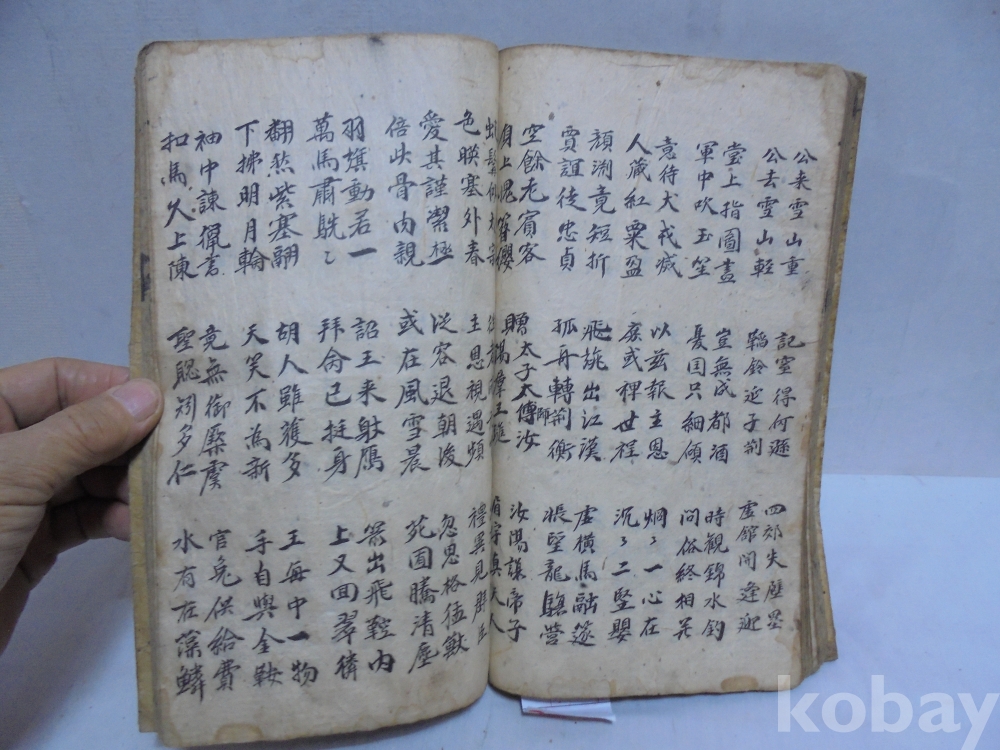 公来雪山重
公去雪山軽
記室得何遜
韜鈴延子荊
四郊失壁壘
虛館開逢迎
堂上指圖畫
軍中吹玉笙
豈無成都酒
憂国只細傾
時觀錦水釣
問俗終相並
意待犬戎滅
人藏紅粟盈
以玆報主恩
庶或裨世程
烱〻一心在
沉〻二竪嬰
顔渕竟短折
賈誼徒忠貞
飛旐出江漢
孤舟轉荊衡
虛橫馬融篴
悵望龍驤塋
空餘老賓客
身上愧簪纓
贈太子太傅師汝
汝陽讓帝子
眉宇真天人
色暎塞外春
主恩視遇頻
禮異見群臣
愛其謹潔極
倍此骨肉親
從容退朝後
或在風雪晨
忽思格猛獸
苑囿騰清塵
羽旗動若一
萬馬肅駪〻
詔王来射鴈
拜命已挺身
箭出飛鞚內
上又回翠獜
翻然紫塞翮
下拂明月輪
胡人雖獲多
天笑不為新
王每中一物
手自與金鞍
袖中諫獵書
扣馬久上陳
竟無銜橛虞
聖聡矧多仁
官免供給費
水有在藻鱗
kobay